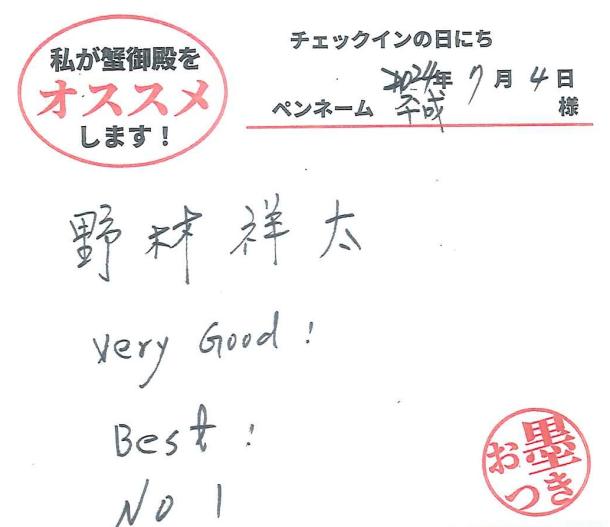 私が蟹御殿を
オススメ
します！
チェックインの日にち
2024年 7月 4日
ペンネーム 平成 様
野林祥太
very Good !
Best !
NO 1
お墨
つき